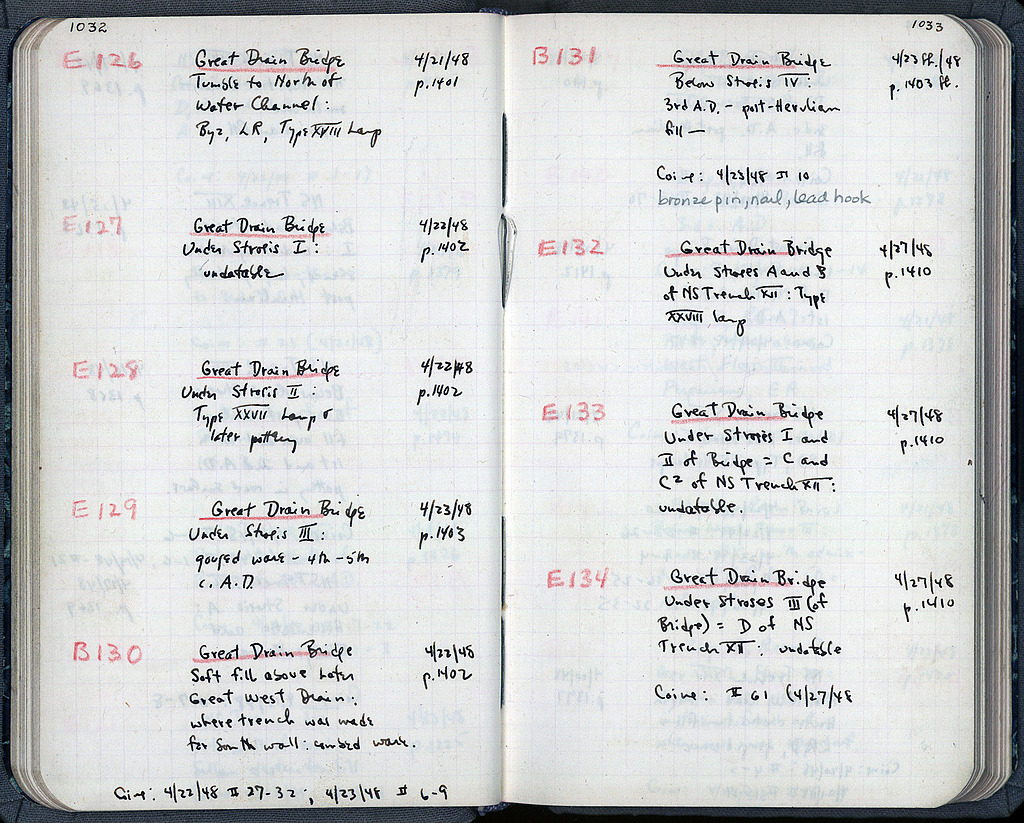 1032
E126 Great Drain Bridge 4/21/48
Tumble to North of p.1401
Water Channel:
Byz, LR, Type XVIII Lamp
E127 Great Drain Bridge 4/22/48
Under Strosis I: p.1402
undatable
E128 Great Drain Bridge 4/22/48
Under Strosis II: p.1402
Type XXVII Lamp &
later pottery
E129 Great Drain Bridge 4/23/48
Under Strosis III: p.1403
gouged ware - 4th - 5th
c. A.D.
B130 Great Drain Bridge 4/22/48
Soft fill above Later p.1402
Great West Drain:
where trench was made
for South wall: combed ware.
Coins: 4/22/48 # 27-32; 4/23/48 # 6-9
1033
B131 Great Drain Bridge 4/23 ff./48
Below Strosis IV: p.1403 ff.
3rd A.D. - post-Herulian
fill —
Coins: 4/23/48 # 10
bronze pin, nail, lead hook
E132 Great Drain Bridge 4/27/48
Under Stroses A and B p.1410
of NS Trench XII: Type
XXVIII Lamp
E133 Great Drain Bridge 4/27/48
Under Stroses I and p.1410
II of Bridge = C and
C² of NS Trench XII:
undatable.
E134 Great Drain Bridge 4/27/48
Under Stroses III (of p.1410
Bridge) = D of NS
Trench XII: undatable
Coins: # 61 (4/27/48